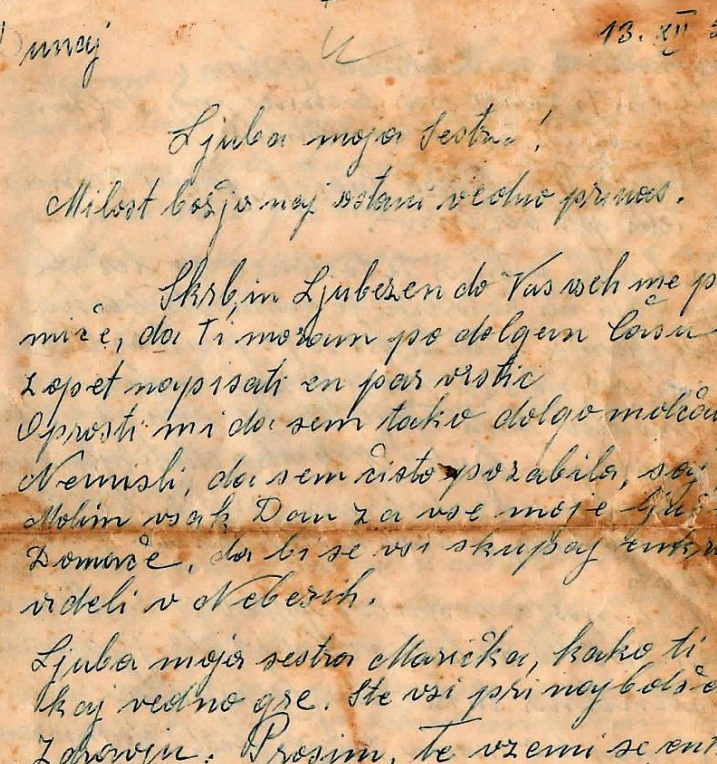 Dunaj 13. XII
Ljuba moja Sestra!
Milost božja naj ostani vedno pri nas.
Skrb, in Ljubezen do Vas vseh me
miče, da Ti moram po dolgem času
zopet napisati en par vrstic
Oprosti mi da sem tako dolgo molča
Nemisli, da sem čisto pozabila, saj
Molim vsak Dan za vse moje
Domače, da bi se vsi skupaj enkra
videli v Nebesih.
Ljuba moja sestra Marička, kako ti
kaj vedno gre. Ste vsi pri najbolše
Zdravju. Prosim, te vzemi si enk